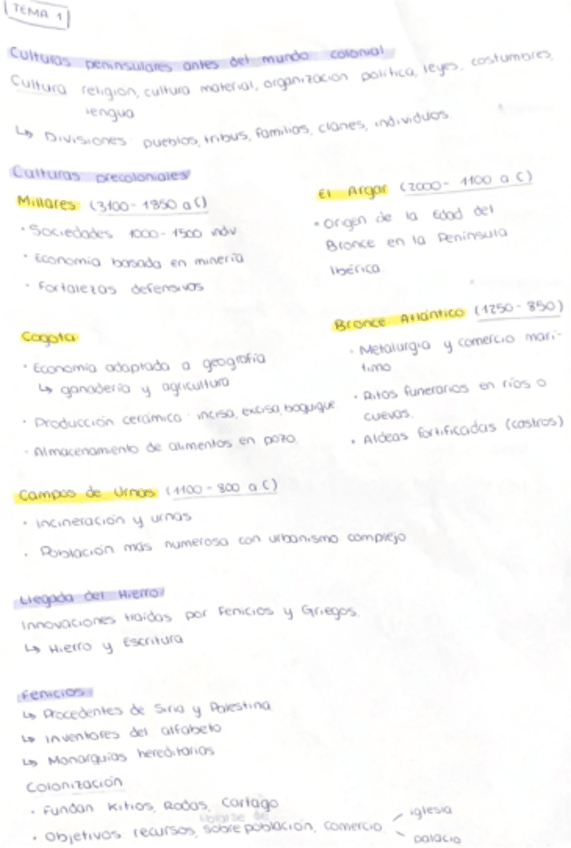 TEMA 1
Culturas peninsulares antes del mundo colonial
Cultura religion, cultura material, organizacion politica, leyes, costumbres,
lengua
↳ Divisiones pueblos, tribus, familias, clanes, individuos.
Culturas precoloniales
Millares (3100 - 1850 a C)
· Sociedades 1000 - 1500 indv
· Economia basada en mineria
· Fortalezas defensivas
El Argar (2000 - 1100 a C)
· Origen de la Edad del
Bronce en la Peninsula
Ibérica.
Cogota
· Economia adaptada a geografia
↳ ganaderia y agricultura
· Producción cerámica incisa, excisa, boquique
· Almacenamiento de alimentos en pozo.
Bronce Atlántico (1250 - 850)
· Metalurgia y comercio mari-
timo
· Ritos funerarios en rios o
cuevas.
· Aldeas fortificadas (castros)
Campos de Urnas (1100 - 800 a C)
· Incineración y urnas
· Población más numerosa con urbanismo complejo
Llegada del Hierro
Innovaciones traidas por Fenicios y Griegos.
↳ Hierro y Escritura
Fenicios
↳ Procedentes de Siria y Palestina
↳ Inventores del alfabeto
↳ Monarquias hereditarias
Colonización
· Fundan Kitios, Rodas, Cartago
· Objetivos recursos, sobrepoblación, comercio
iglesia
palacio